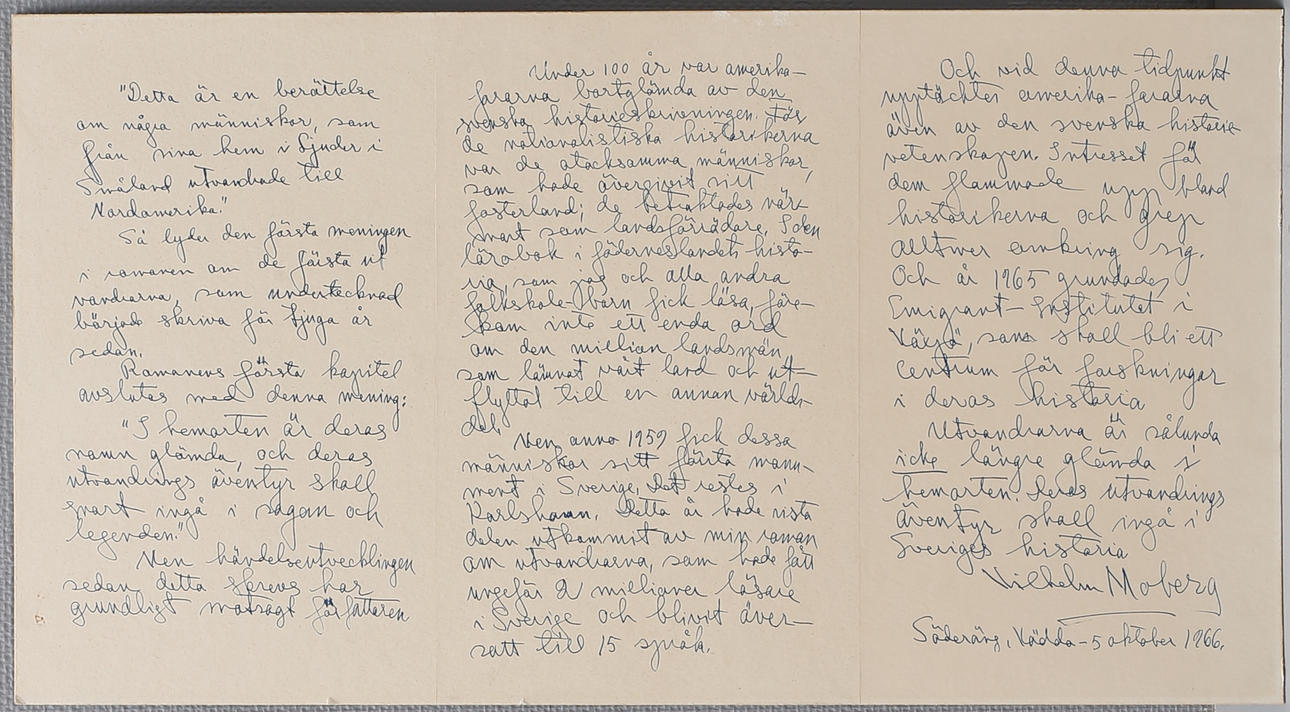 "Detta är en berättelse
om några människor, som
från sina hem i Ljuder i
Småland utvandrade till
Nordamerika."
Så lyder den första meningen
i romanen om de första ut
vandrarna, som undertecknad
började skriva för tjuga år
sedan.
Romanens första kapitel
avslutas med denna mening:
"I hemorten är deras
namn glömda, och deras
utvandrings äventyr skall
snart ingå i sagan och
legenden."
Men händelseutvecklingen
sedan detta skrevs har
grundligt motsagt författaren
Under 100 år var amerika-
fararna bortglömda av den
svenska historieskrivningen. För
de nationalistiska historikerna
var de otacksamma människor,
som hade övergivit sitt
fosterland; de betraktades när-
mast som landsförrädare. I den
lärobok i fäderneslandets histo-
ria, som jag och alla andra
folkskole-barn fick läsa, före-
kom inte ett enda ord
om den million landsmän
som lämnat vårt land och ut-
flyttat till en annan världs-
del.
Men anno 1959 fick dessa
människor sitt första monu-
ment i Sverige. Det restes i
Karlshamn. Detta år hade sista
delen utkommit av min roman
om utvandrarna, som hade fått
ungefär 2 millioner läsare
i Sverige och blivit över-
satt till 15 språk.
Och vid denna tidpunkt
upptäcktes amerika-fararna
även av den svenska historie-
vetenskapen. Intresset för
dem flammade upp bland
historikerna och grep
alltmer omkring sig.
Och år 1965 grundades
Emigrant-Institutet i
Växjö, som skall bli ett
centrum för forskningar
i deras historia
Utvandrarna är sålunda
icke längre glömda i
hemorten. Deras utvandrings
äventyr skall ingå i
Sveriges historia
Vilhelm Moberg
Söderäng, Väddö - 5 oktober 1966.